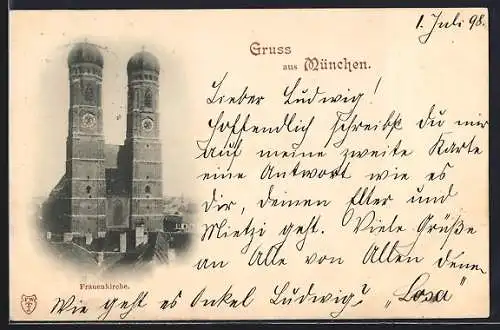 1. Juli 98.
Gruss
aus München.
Lieber Ludwig!
Hoffendlich schreibst du mir
auf meine zweite Karte
eine Antwort wie es
dir, deinen Elter und
Mietzi geht. Viele Grüße
an Alle von Allen denen
"Losa"
Frauenkirche.
Wie geht es Onkel Ludwig?